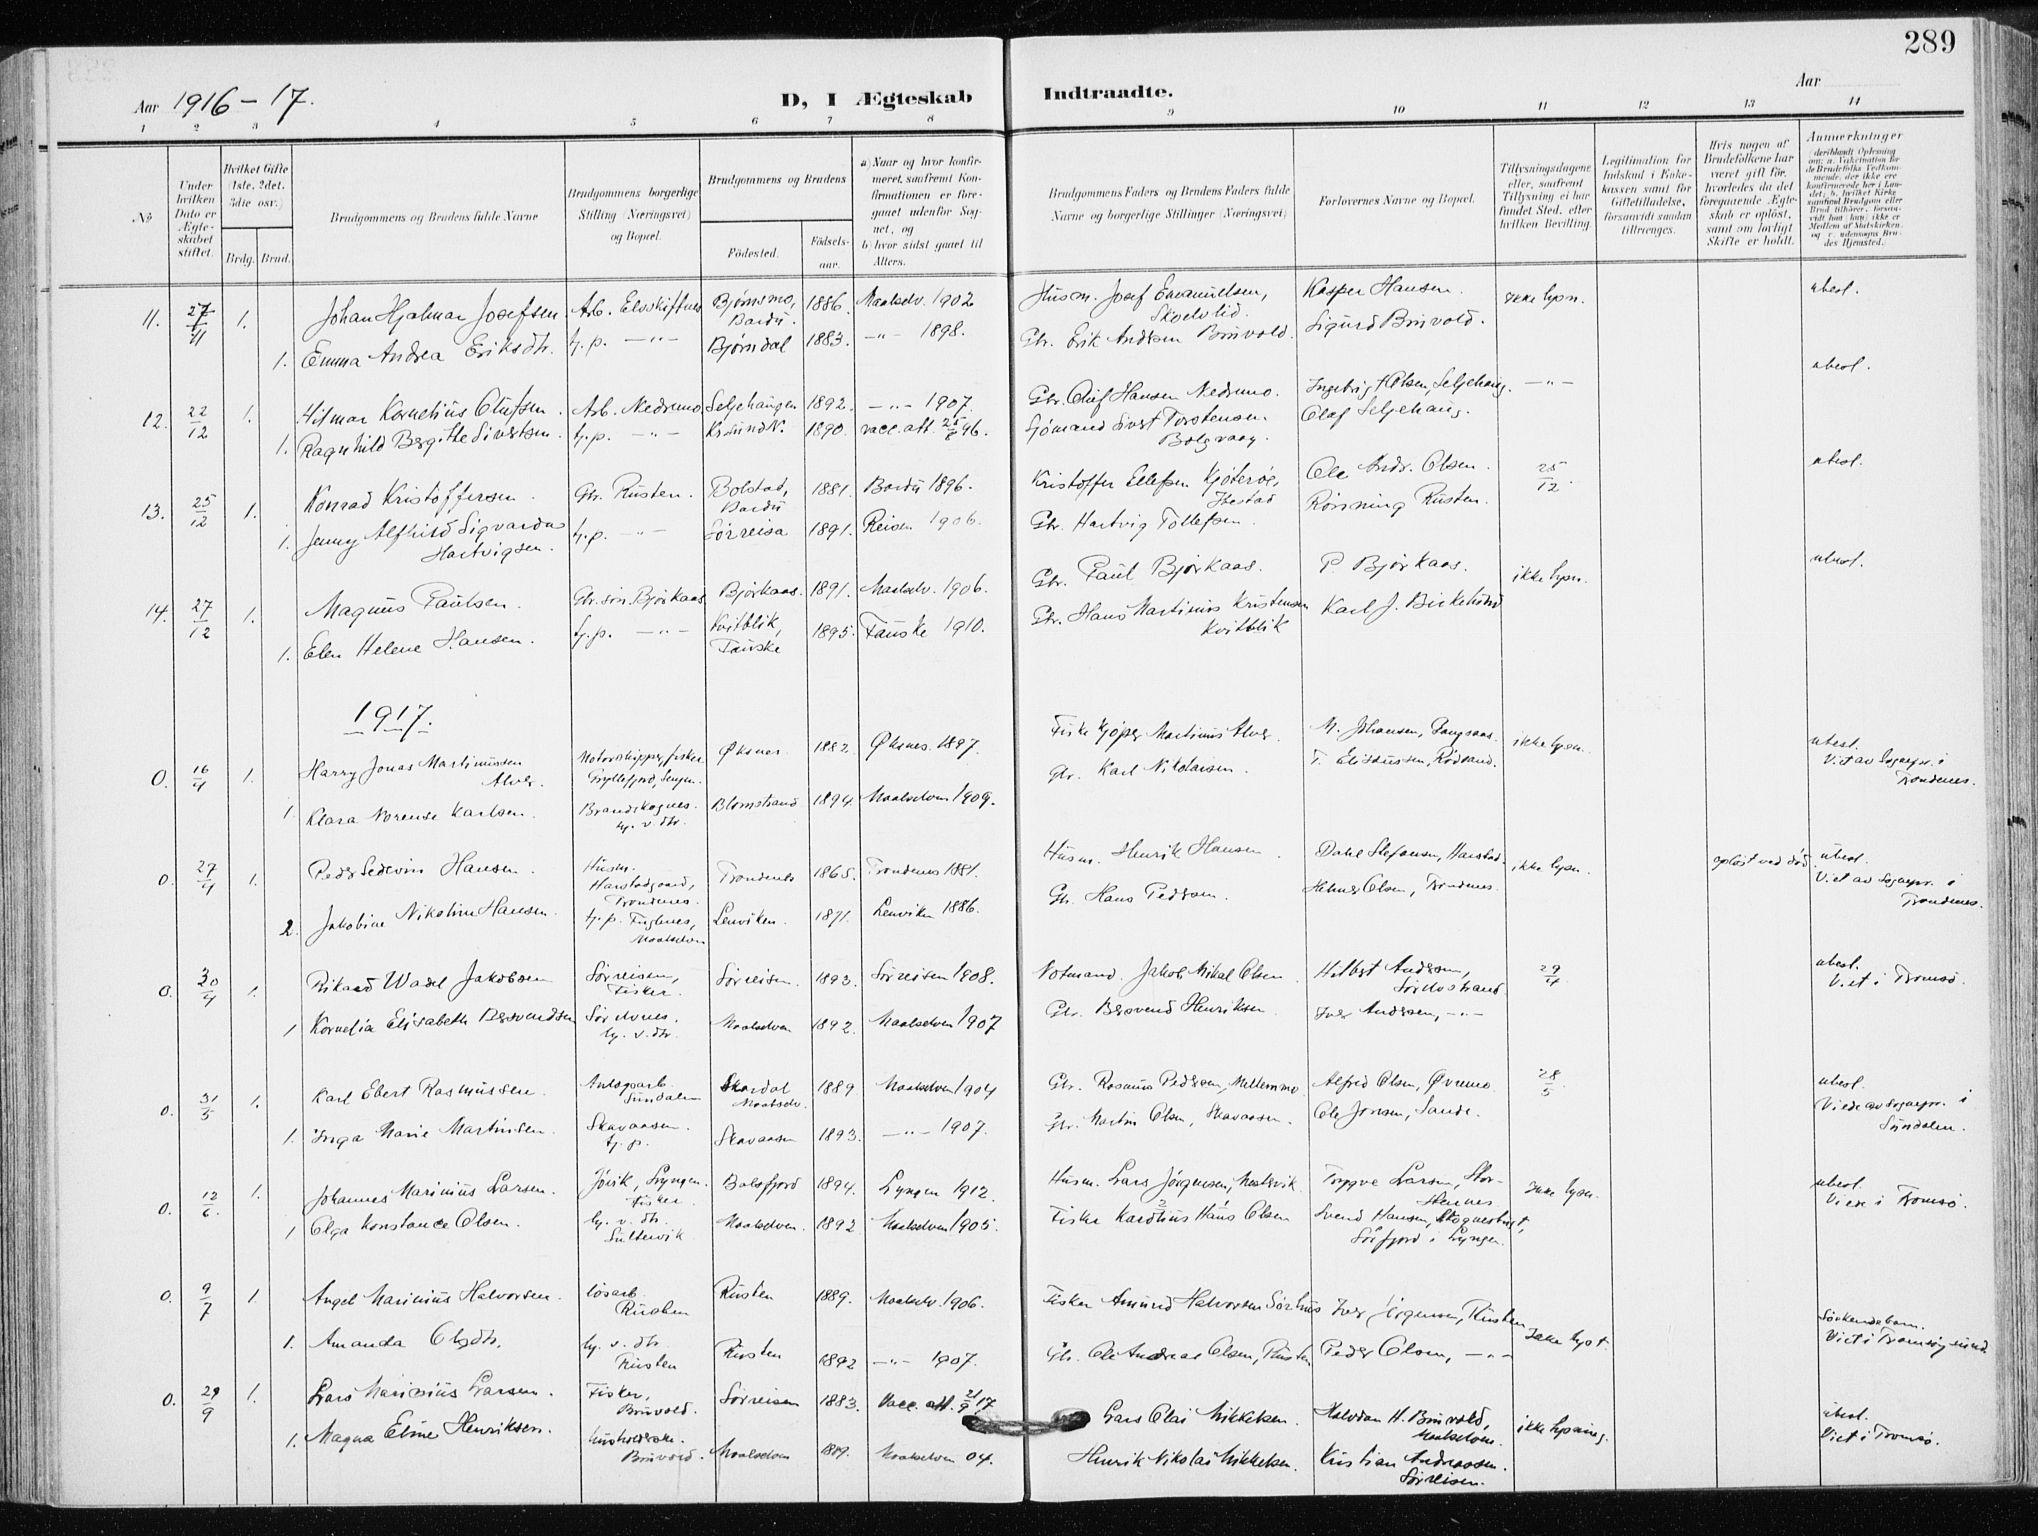 289
Aar 1916-17.
D, I Ægteskab Indtraadte.
Aar
1 2 3 4 5 6 7 8 9 10 11 12 13 14
No
Under hvilken Dato er Ægteskabet stiftet.
Hvilket Gifte (1ste, 2det, 3die osv.)
Brdg. Brud.
Brudgommens og Brudens fulde Navne
Brudgommens borgerlige Stilling (Næringsvei) og Bopæl.
Brudgommens og Brudens
Fødested. Fødselsaar.
a) Naar og hvor konfirmeret, saafremt Konfirmationen er foregaaet udenfor Sognet, og
b) hvor sidst gaaet til Alters.
Brudgommens Faders og Brudens Faders fulde Navne og borgerlige Stillinger (Næringsvei)
Forlovernes Navne og Bopæl.
Tillysningsdagene eller, saafremt Tillysning ei har fundet Sted, efter hvilken Bevilling.
Legitimation for Indskud i Enkekassen samt for Giftetilladelse, forsaavidt saadan tiltrænges.
Hvis nogen af Brudefolkene har været gift før, hvorledes da det foregaaende Ægteskab er opløst, samt om lovligt Skifte er holdt.
Anmerkninger
(deriblandt Oplysning om: a. Vakcination for de Brudefolks Vedkommende, der ikke ere konfirmerede her i Landet; b. hvilket Kirkesamfund Brudgom eller Brud tilhører, forsaavidt han (hun) ikke er Medlem af Statskirken, og c. udensogns Brudes Hjemsted.)
11. 27/11 1. Johan Hjalmar Josefsen Arb. Elvskiftnes Bjørnsmo, Bardu. 1886. Maalselv. 1902 Husm. Josef Emanuelsen, Skoelvlid. Kasper Hansen. Ikke lysn. ubesl.
1. Emma Andrea Eriksdtr. hj.p. -"- Bjørndal 1883. -"- 1898. Gbr. Erik Andersen Brunvold. Sigurd Brunvold.
12. 22/12 1. Hilmar Kornelius Olufsen. Arb. Nedremo. Seljehaugen 1892. -"- 1907. Gbr. Oluf Hansen Nedremo. Ingebrigt Olsen, Seljehaug. -"- ubesl.
1. Ragnhild Bergitte Sivertsen. hj.p. -"- Kr.sund N. 1890. vacc. att. 25/8 96. Sjømand Sivert Torstensen Bolgvaag. Olaf Seljehaug.
13. 25/12 1. Konrad Kristoffersen. Gbr. Rusten. Bolstad, Bardu 1881. Bardu 1896. Kristoffer Ellefsen Kjøterøe, Ibestad Ole Andr. Olsen. 25/12. ubesl.
1. Jenny Alfhild Sigvarda Hartvigsen. hj.p. -"- Sørreisa 1891. Reisen 1906. Gbr. Hartvig Tollefsen. Rønning Rusten.
14. 27/12 1. Magnus Paulsen. Gbr.søn Bjørkaas Bjørkaas. 1891. Maalselv. 1906. Gbr. Paul Bjørkaas. P. Bjørkaas. ikke lysn. ubesl.
1. Elen Helene Hansen. hj.p. -"- Kvitblik, Fauske 1895. Fauske 1910. Gbr. Hans Martinus Kristensen Kvitblik Karl J. Birkelund
1917.
0. 16/4 1. Harry Jonas Martinussen Alver. Motorskipper, fisker Gryllefjord, Senjen. Øksnes. 1882. Øksnes. 1897. Fiskekjøper Martinus Alver. M. Johansen, Langnaas. ikke lysn. ubesl. Viet av Sognepr. i Trondenes.
1. Klara Norense Karlsen. Brandskognes. hj. v. dtr. Blomstrand 1894. Maalselven 1909. Gbr. Karl Nikolaisen. T. Eliseussen, Rødsand.
0. 27/4 1. Peder Sedevin Hansen. Husm. Harstadgaard, Trondenes. Trondenes 1865. Trondenes 1881. Husm. Henrik Hansen. Dahl Stefansen, Harstad. ikke lysn. opløst ved død. ubesl. Viet av Sognepr. i Trondenes.
2. Jakobine Nikoline Hansen. hj.p. Fuglenes, Maalselven Lenviken. 1871. Lenviken 1886. Gbr. Hans Pedersen. Helmer Olsen, Trondenes.
0. 30/4 1. Rikard Wadel Jakobsen Sørreisen, Fisker. Sørreisen. 1893. Sørreisen 1908. Notmand. Jakob Mikal Olsen Helbert Andersen, Sørelvstrand. 29/4. ubesl. Viet i Tromsø.
1 Kornelia Elisabeth Bersvendsen Sørelvnes. hj. v. dtr. Maalselven 1892. Maalselven 1907 Gbr. Bersvend Henriksen. Iver Andersen, -"-
0. 31/5 1. Karl Ebert Rasmussen. Anlægsarb. Sundalen Skardal Maalselv. 1889 Maalselven 1904 Gbr. Rasmus Pedersen, Mellemmo. Alfred Olsen, Øvremo. 28/5. ubesl. Viede av Sognepr. i Sundalen.
1. Inga Marie Martinsen. Skavaasen. hj.p. Skavaasen 1893. -"- 1907. Gbr. Martin Olsen, Skavaasen. Ole Jonsen, Sande.
0. 12/6. 1. Johannes Marinius Larsen. Jøvik, Lyngen. Fisker Balsfjord 1894. Lyngen 1912. Husm. Lars Jørgensen, Mestervik Trygve Larsen, Storstennes Ikke lysn. ubesl. Viede i Tromsø.
1 Olga Konstance Olsen. hj. v. dtr. Sultervik Maalselven. 1892 Maalselven 1905. Fisker Karolius Hans Olsen Svend Hansen, Sørfjord i Lyngen.
0. 9/7 1. Angel Marinius Halvorsen. løsarb. Rusten Rusten 1889. Maalselv. 1906. Fisker Amund Halvorsen Iver Jørgensen, Rusten Ikke lyst. Søskendebarn. Viet i Tromsøysund.
1. Amanda Olsdtr. hj. v. dtr. Rusten Rusten 1892 -"- 1907. Gbr. Ole Andreas Olsen, Rusten Peder Olsen, -"-
0. 29/9 1. Lars Marinius Larsen. Fisker, Brunvold. Sørreisen 1883. Vacc. att. 21/9 17 Lars Olai Mikkelsen. Halvdan H. Brunvold, Maalselven. ikke lysning. ubesl. Viet i Tromsø.
1. Magna Eline Henriksen. husholderske. Brunvold. Maalselven 1889. Maalselven 04. Henrik Nikolai Mikkelsen. Kristian Andreassen. Sørreisen.